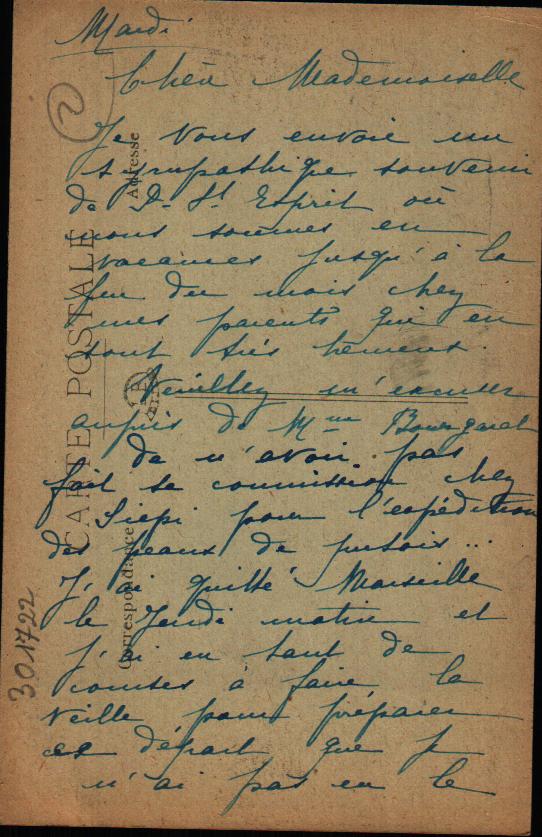 Mardi
Chère Mademoiselle
Je vous envoie un
sympathique souvenir
de Pt St Esprit où
nous sommes en
vacances jusqu'à la
fin du mois chez
mes parents qui en
sont très heureux.
Veuillez m'excuser
auprès de Mme
de n'avoir pas
fait sa commission chez
Siepi pour l'expédition
des peaux de putois...
J'ai quitté Marseille
le Jeudi matin et
j'ai eu tant de
courses à faire la
veille pour préparer
ce départ que je
n'ai pas eu le
2
301722
CARTE POSTALE
Correspondance
Adresse